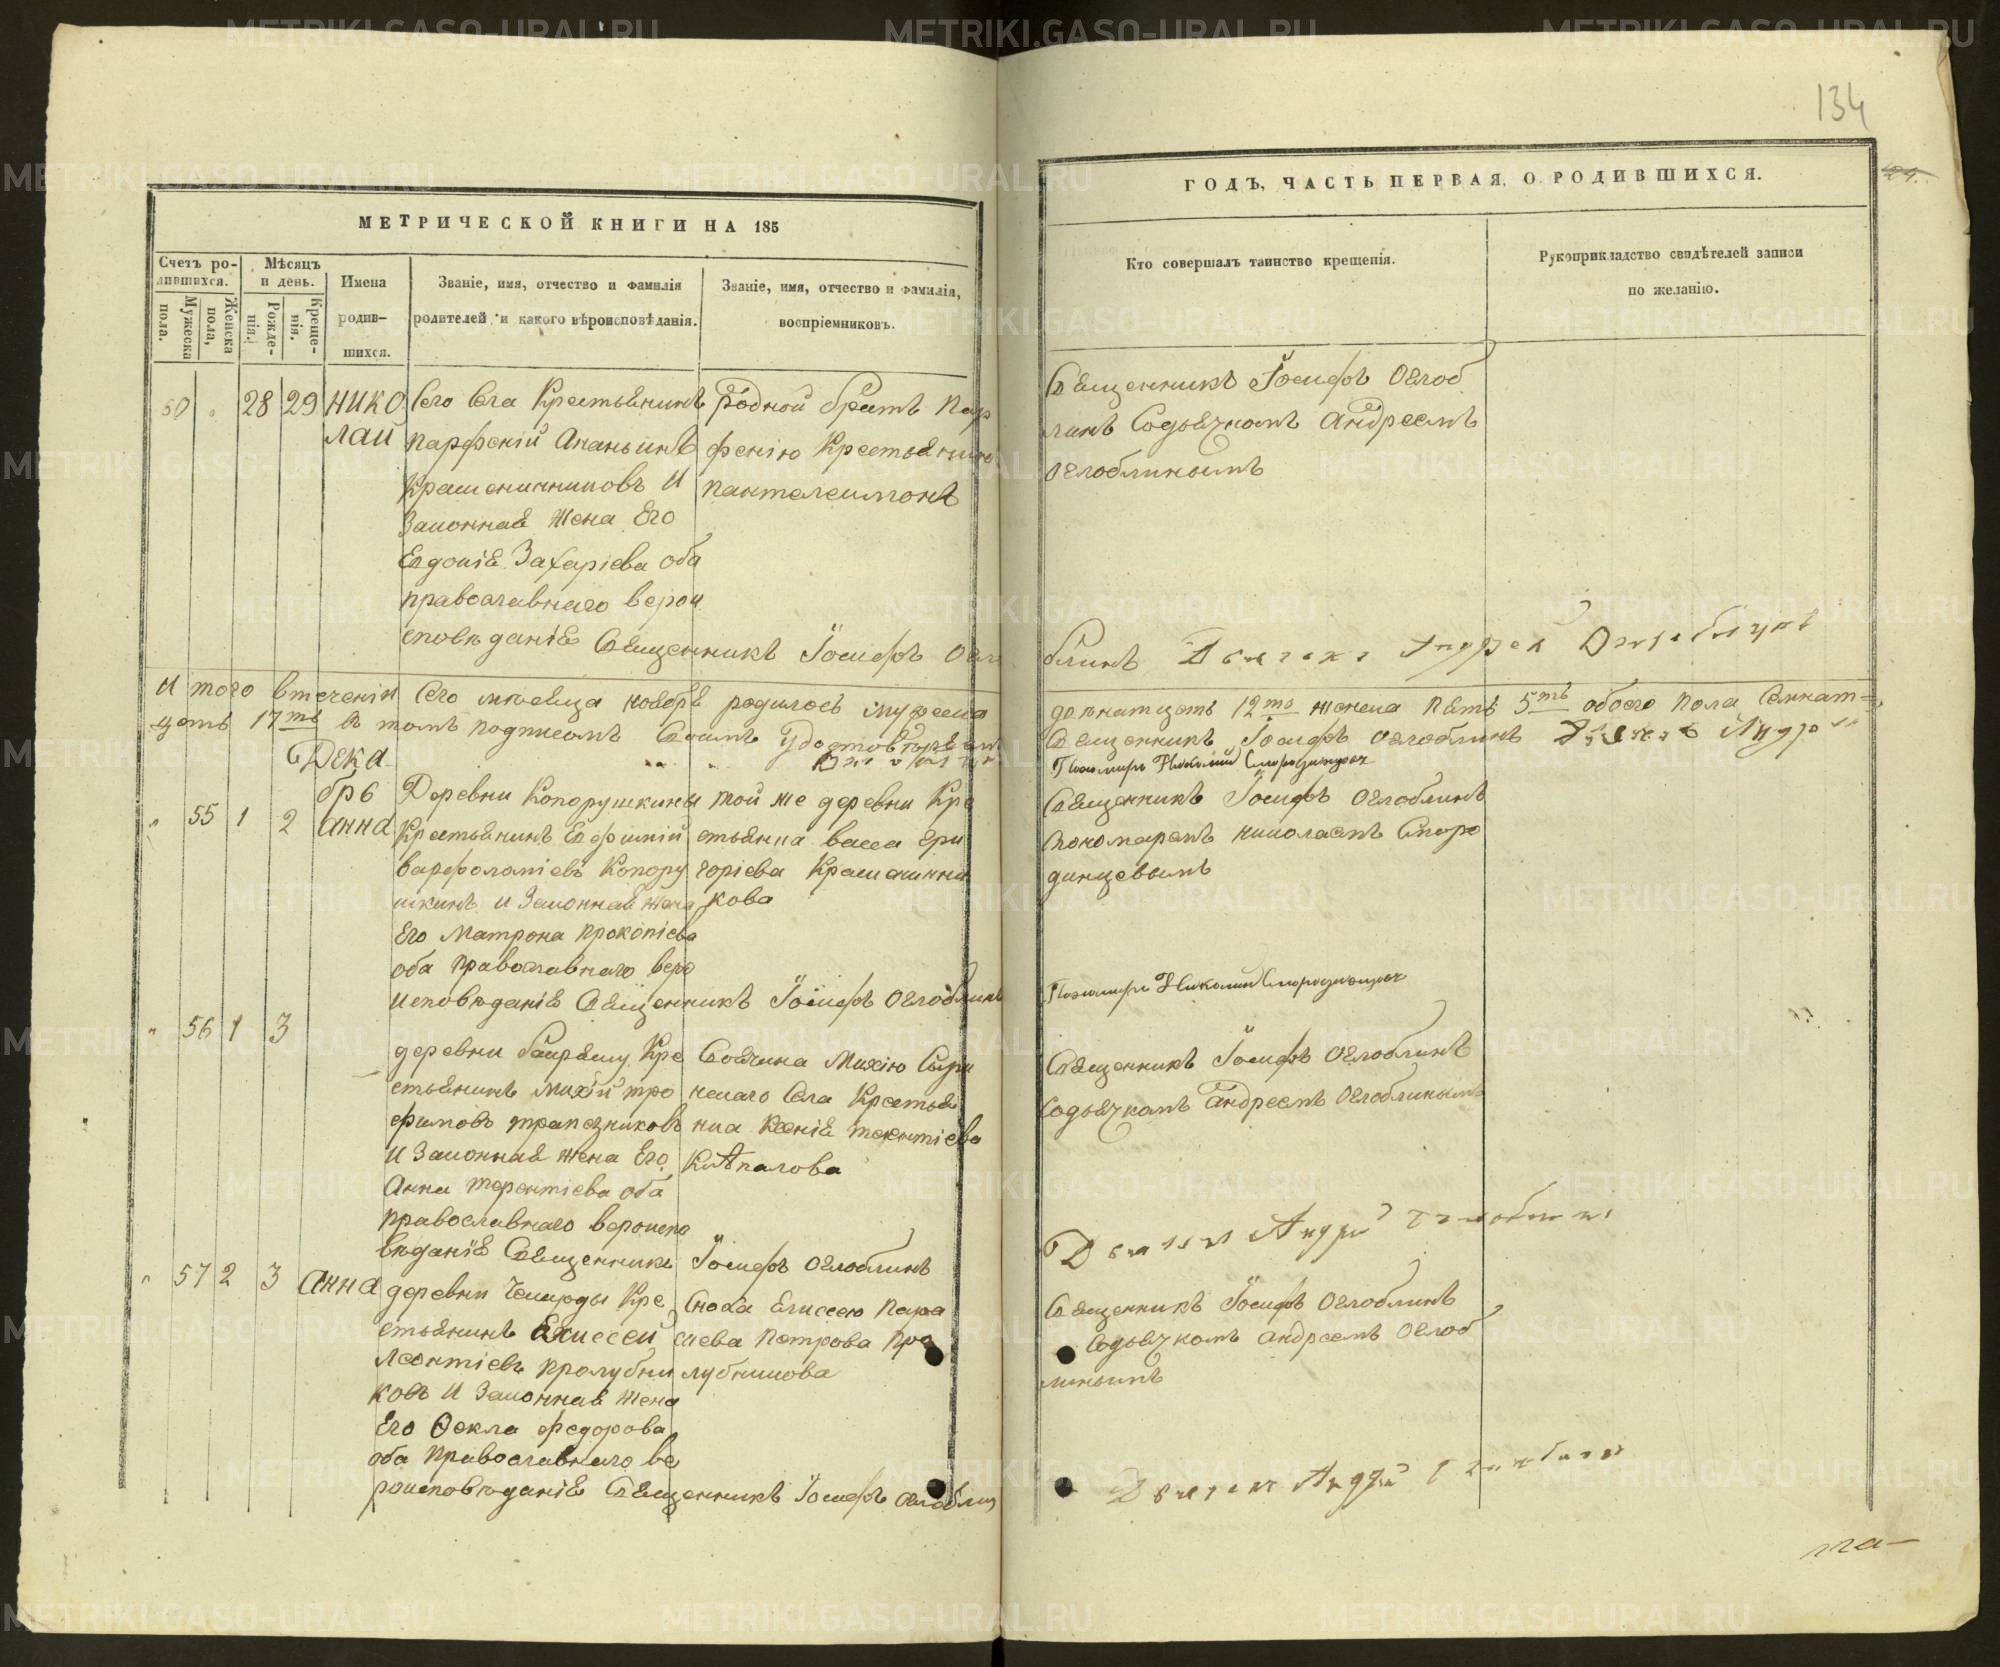 134
МЕТРИЧЕСКОЙ КНИГИ НА 185
ГОДЪ, ЧАСТЬ ПЕРВАЯ, О РОДИВШИХСЯ.
Счетъ родившихся.
Мужеска пола.
Женска пола,
Мѣсяцъ и день.
Рожденія.
Крещенія.
Имена родившихся.
Званіе, имя, отчество и фамилія
родителей и какого вѣроисповѣданія.
Званіе, имя, отчество и фамилія,
воспріемниковъ.
Кто совершалъ таинство крещенія.
Рукоприкладство свидѣтелей записи
по желанію.
28 29 Нико
лай
Сего Села Крестьянинъ
Парфеній Ананьинъ
Крашенинниковъ И
Законная Жена Его
Евдокія Захаріева оба
православнаго верои
сповѣданія Священникъ Іосифъ Огло
Родной братъ Пар
фенію Крестьянинъ
пантелеимонъ
Священникъ Іосифъ Оглоб
линъ Содьячкомъ Андреемъ
Оглоблинымъ
блинъ Дьячекъ Андрей Оглоблинъ
И того втеченіи Сего месяца ноября родилось мужеска
цать 17ть в томъ подписомъ Своимъ Удостоверяемъ
двенатцать 12ть женска пять 5ть обоего пола Семнат=
Священникъ Іосифъ Оглоблинъ Дьячекъ Андрей
Пономарь Николай Смородинцевъ
Дека
брь
55 1 2 Анна
Деревни Копорушкины
Крестьянинъ Евфимій
Варфоломіевъ Копору
шкинъ И Законная жена
Его Матрона Прокопіева
оба Православнаго веро
исповѣданія Священникъ Іосифъ Оглоблинъ
той же деревни Кре
стьянка васса Гри
горіева Крашенинни
кова
Священникъ Іосифъ Оглоблинъ
Пономаремъ николаемъ Сморо
динцевымъ
Пономарь Николай Смородинцевъ
56 1 3
деревни Кре
стьянинъ Михій тро
фимовъ трапезниковъ
И Законная жена Его
Анна терентіева оба
православнаго вероиспо
вѣданія Священникъ Іосифъ Оглоблинъ
Михію
Села Крестья
нка Ксенія терентіева
Священникъ Іосифъ Оглоблинъ
Содьячкомъ Андреемъ Оглоблинымъ
Дьячекъ Андрей Оглоблинъ
57 2 3 Анна
деревни Чепчуры Кре
стьянинъ Елисеей
Леонтіевъ Пролубни
ковъ И Законная Жена
Его Ѳекла федорова
оба Православнаго ве
роисповѣданія Священникъ Іосифъ Оглоблин
Сноха Елисею Параскева Петрова Про
лубникова
Священникъ Іосифъ Оглоблинъ
Содьячкомъ Андреемъ Оглоб
линымъ
Дьячекъ Андрей Оглоблинъ
METRIKI.GASO-URAL.RU